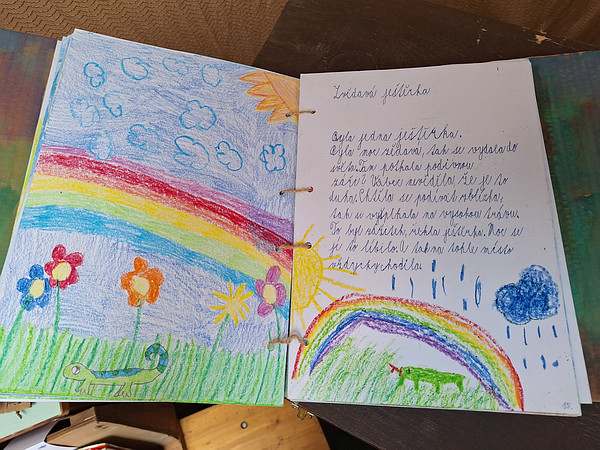 Zvědavá ještěrka
Byla jedna ještěrka.
Byla moc zvědavá, tak se vydala do
světa. Tam potkala podivnou
záři? Vůbec nevěděla, že je to
duha. Chtěla se podívat zblízka,
tak se vyšplhala na vysokou trávu.
To byl zážitek, řekla ještěrka. Moc se
jí to líbilo. A takna tohle místo
vždycky chodila.
15.